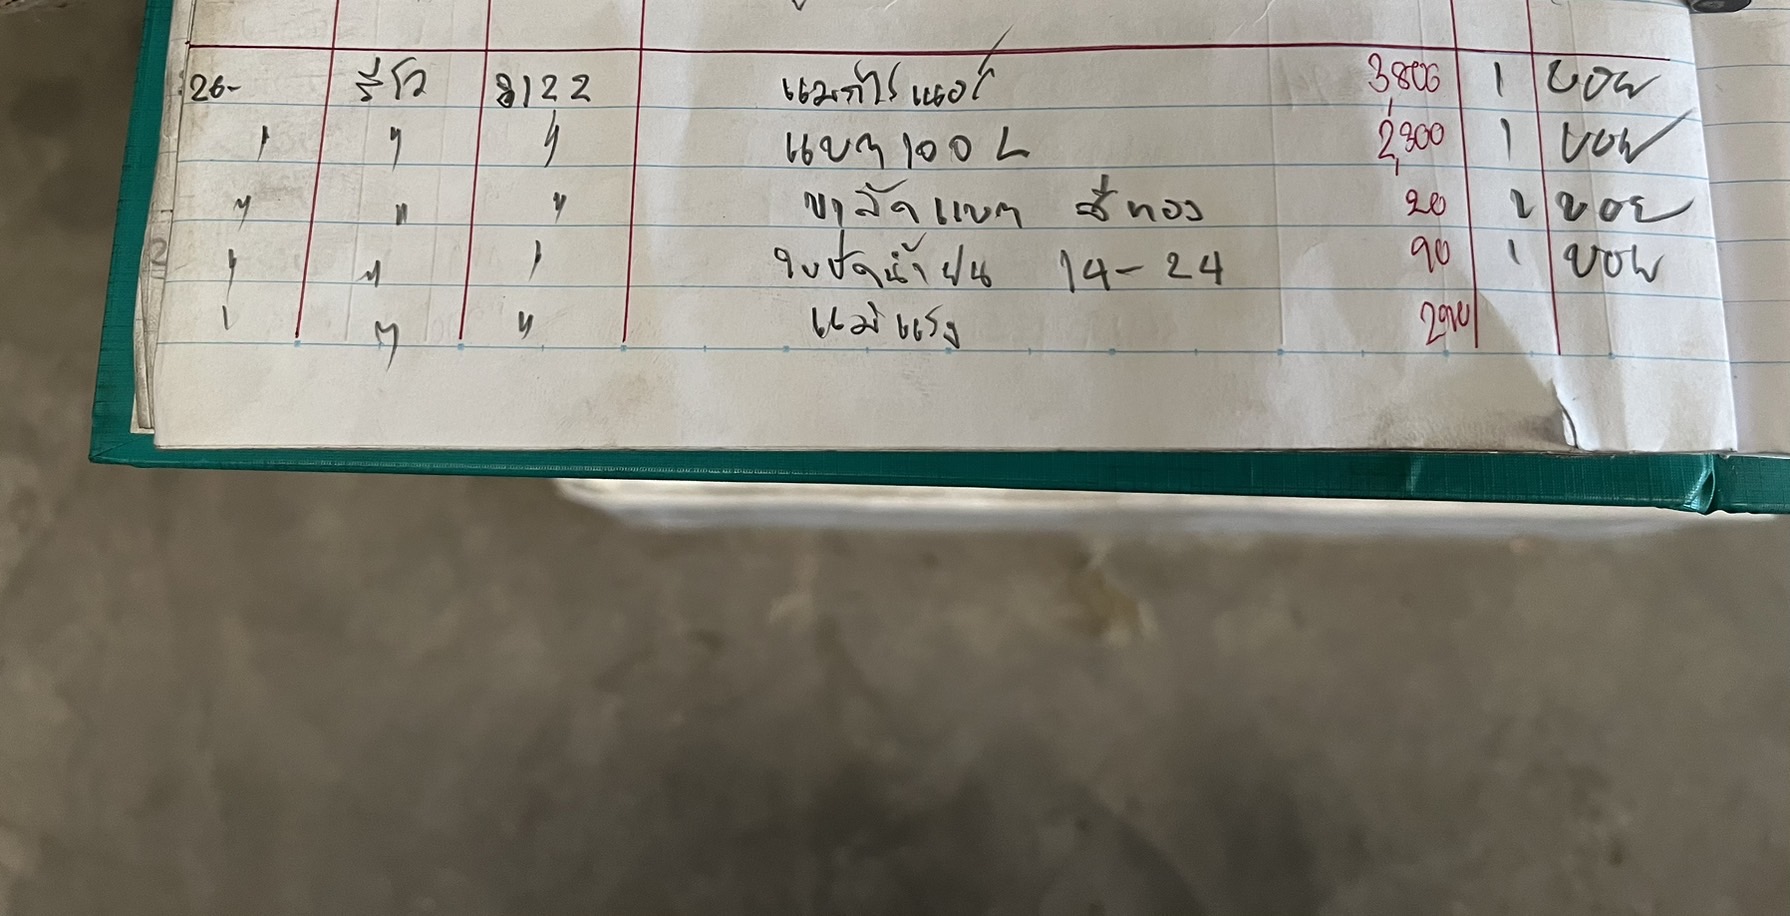 26- รีโว 8122 แมกไรเนอร์ 3,800 1 ขอพ
" " " แบต 100 L 2,300 1 ขอพ
" " " ขารัดแบต สีทอง 20 2 ขอพ
" " " ใบปัดน้ำฝน 14-24 90 1 ขอพ
" " " แม่แรง